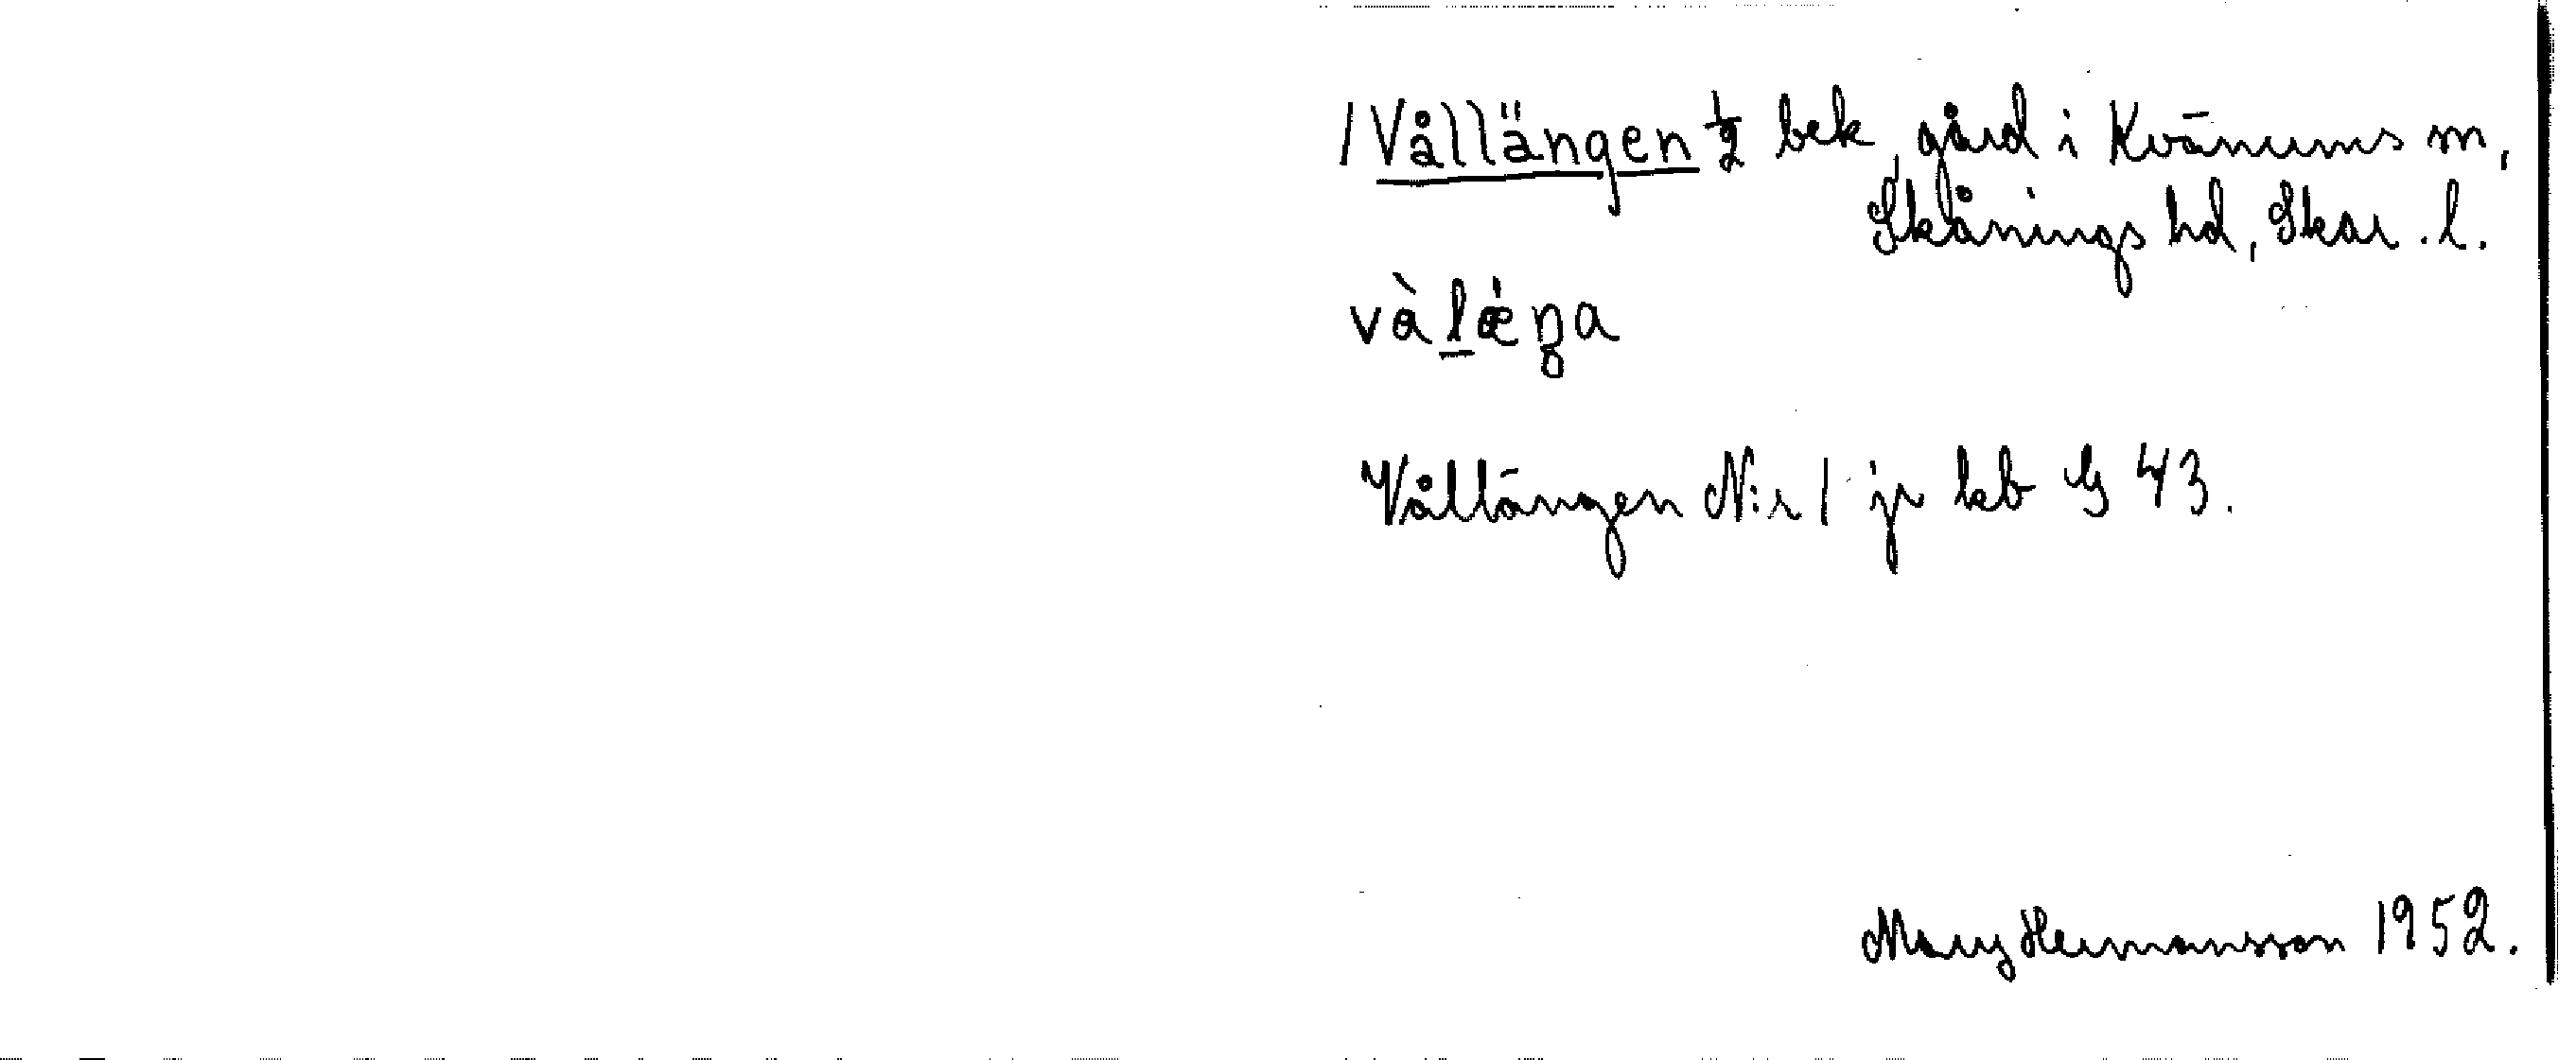 1 Vållängen ½ bek, gård i Kvänums sn,
Skånings hd, Skar. l.
và lǽŋa
Vållängen N:r 1 jr kb G 43.
Mary Hermansson 1952.